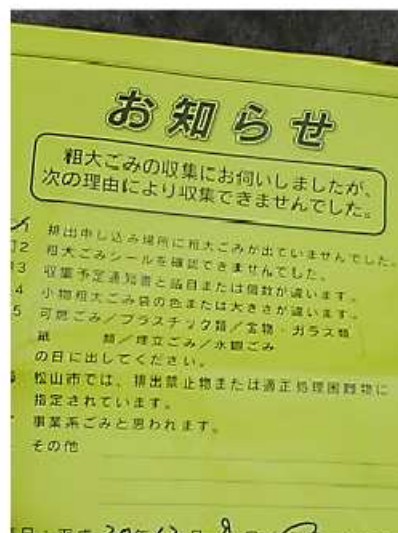 お知らせ
粗大ごみの収集にお伺いしましたが、
次の理由により収集できませんでした。
1 排出申し込み場所に粗大ごみが出ていませんでした。
2 粗大ごみシールを確認できませんでした。
3 収集予定通知書と品目または個数が違います。
4 小物粗大ごみ袋の色または大きさが違います。
5 可燃ごみ/プラスチック類/金物・ガラス類
紙 類/埋立ごみ/水銀ごみ
の日に出してください。
松山市では、排出禁止物または適正処理困難物に
指定されています。
事業系ごみと思われます。
その他